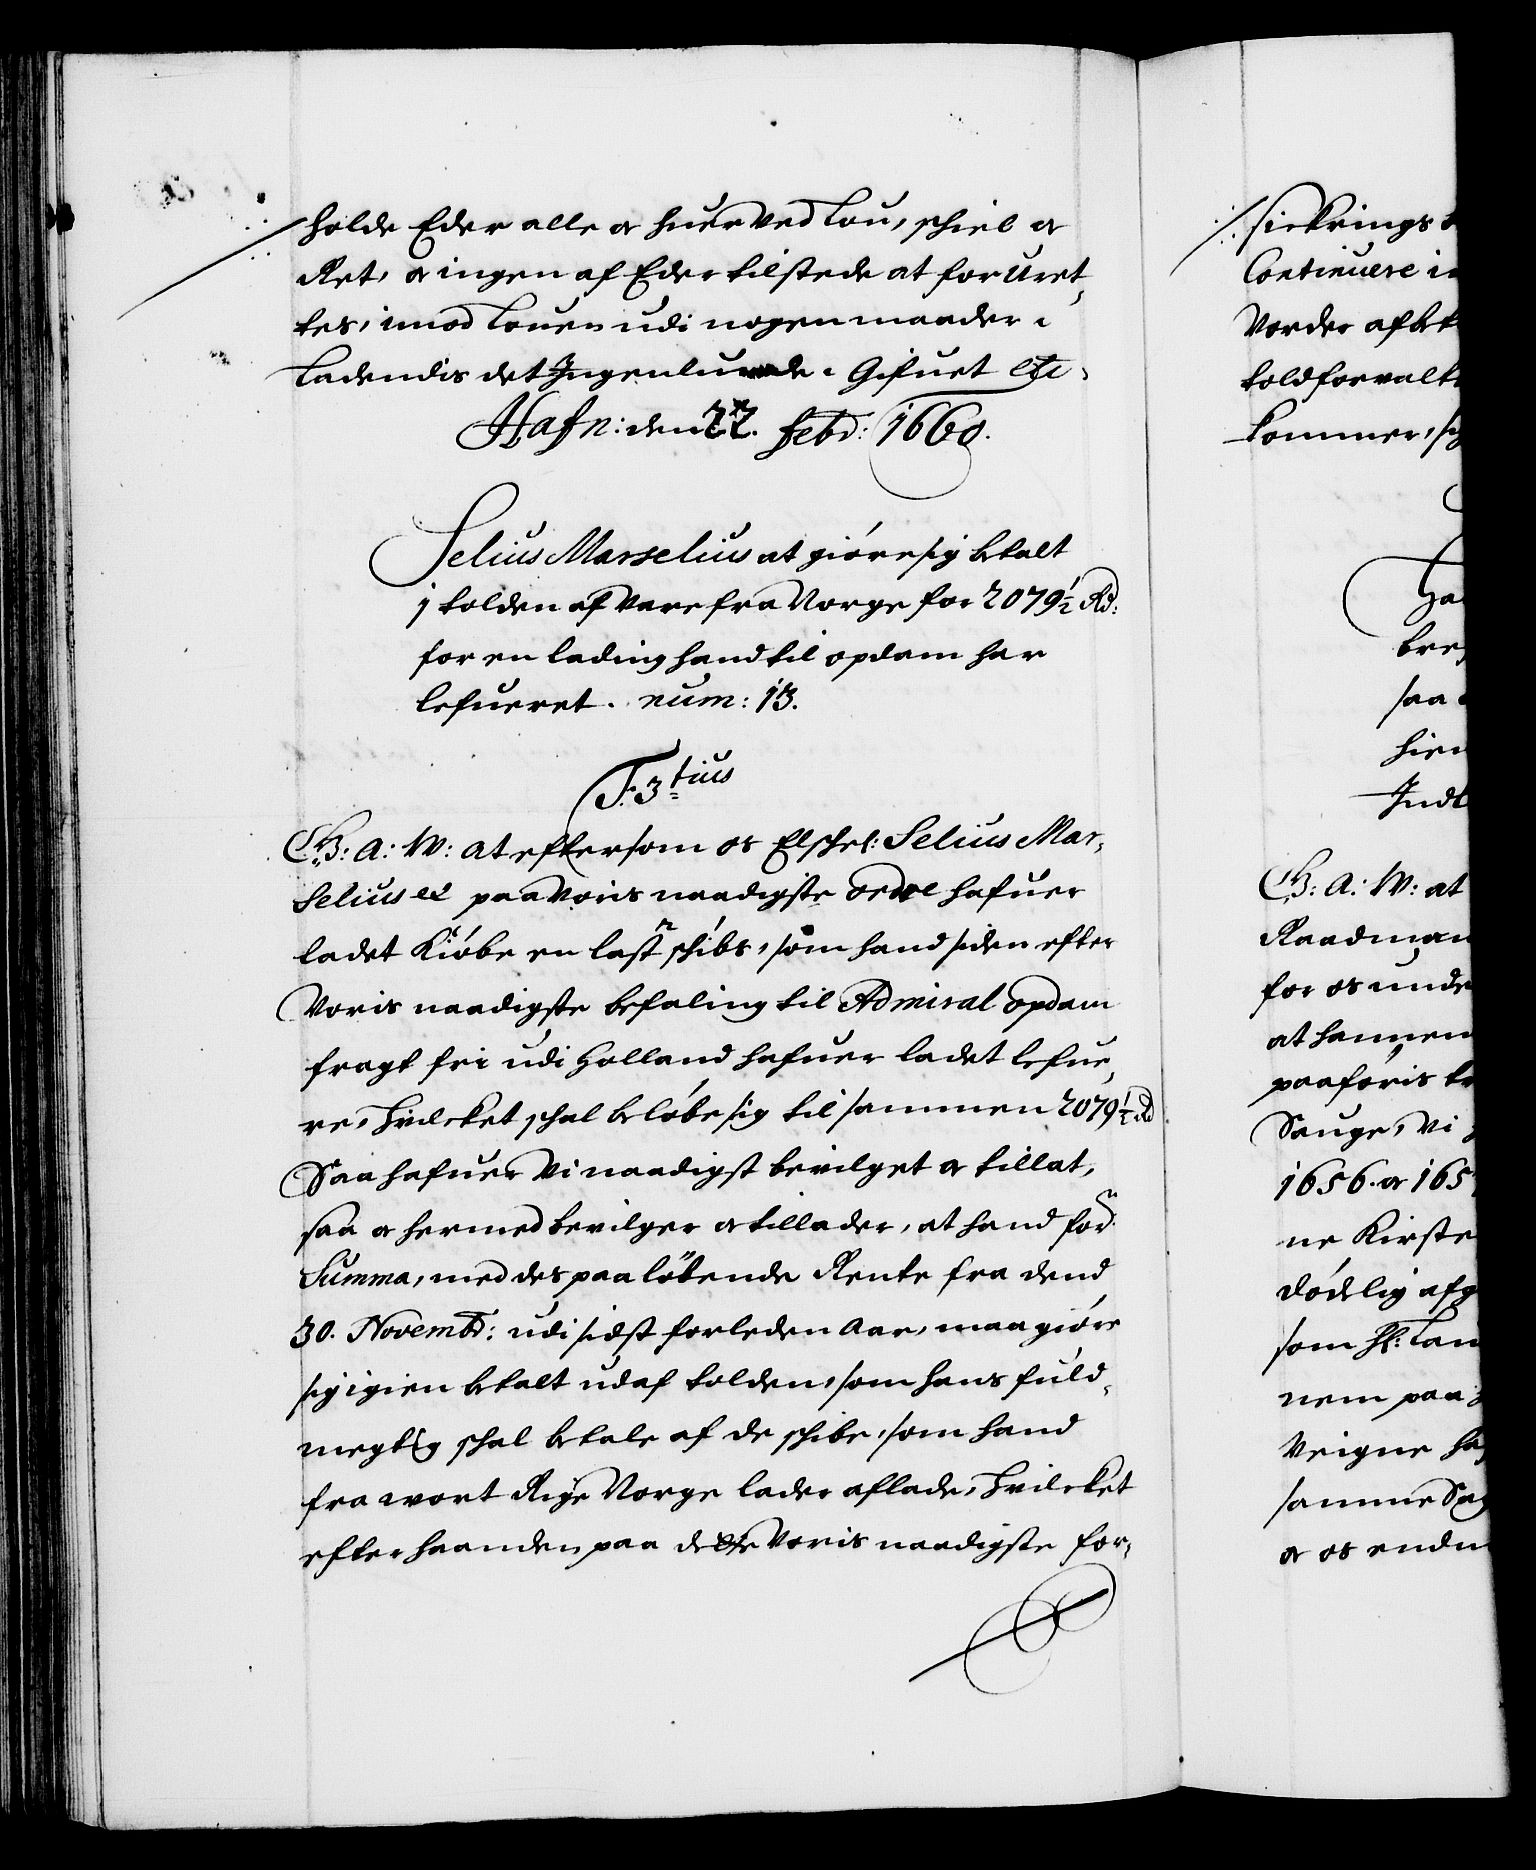 holde Eder alle oc huer ved Lou, schiel oc
Ret, oc ingen af Eder tilstede at forUret,
tes, imod Louen udi nogen maader
Ladendis det Ingenlunde. Gifuet etc.
Hafn: den 22. febr: 1660.
Selius Marselius at giøre sig betalt
j tolden af Vare fra Norge for 2079½ Rd:
for en lading hand til opdam har
lefueret. num: 13.
F. 3tius
G. B: A: W: at eftersom os Elschel: Selius Mar,
selius etc paa Voris naadigste ordre hafuer
ladet Kiøbe en last schibs, som hand siden efter
Voris naadigste befaling til Admiral opdam
fragt fri udi Holland hafuer ladet lefue,
re, hvilcket schal beløbe sig til sammen 2079½ Rd
Saa hafuer Vi naadigst bevilget oc tillat,
saa oc hermed bevilger oc tillader, at hand forn:
Summa, med des paaløbende Rente fra dend
30. Novembr: udi sidst forleden Aar, maa giøre
sig igien betalt udaf tolden, som hans fuld,
megtig schal betale af de schibe, som hand
fra vort Rige Norge lader aflade, hvilcket
efterhaanden paa dette Voris naadigste for,
sickrings
Continuere
Vorder
toldforvalt
kommer, sig
Ha
bre
saa
hien
Indt
G. B: A: W: at
Raadman
for os unde
at hannem
paaføris
Sauge, Vi
1656. oc 165
ne Kirste
dødelig afg
som Hl: Lan
nem paa
Veigne ha
samme Sag
oc os endn